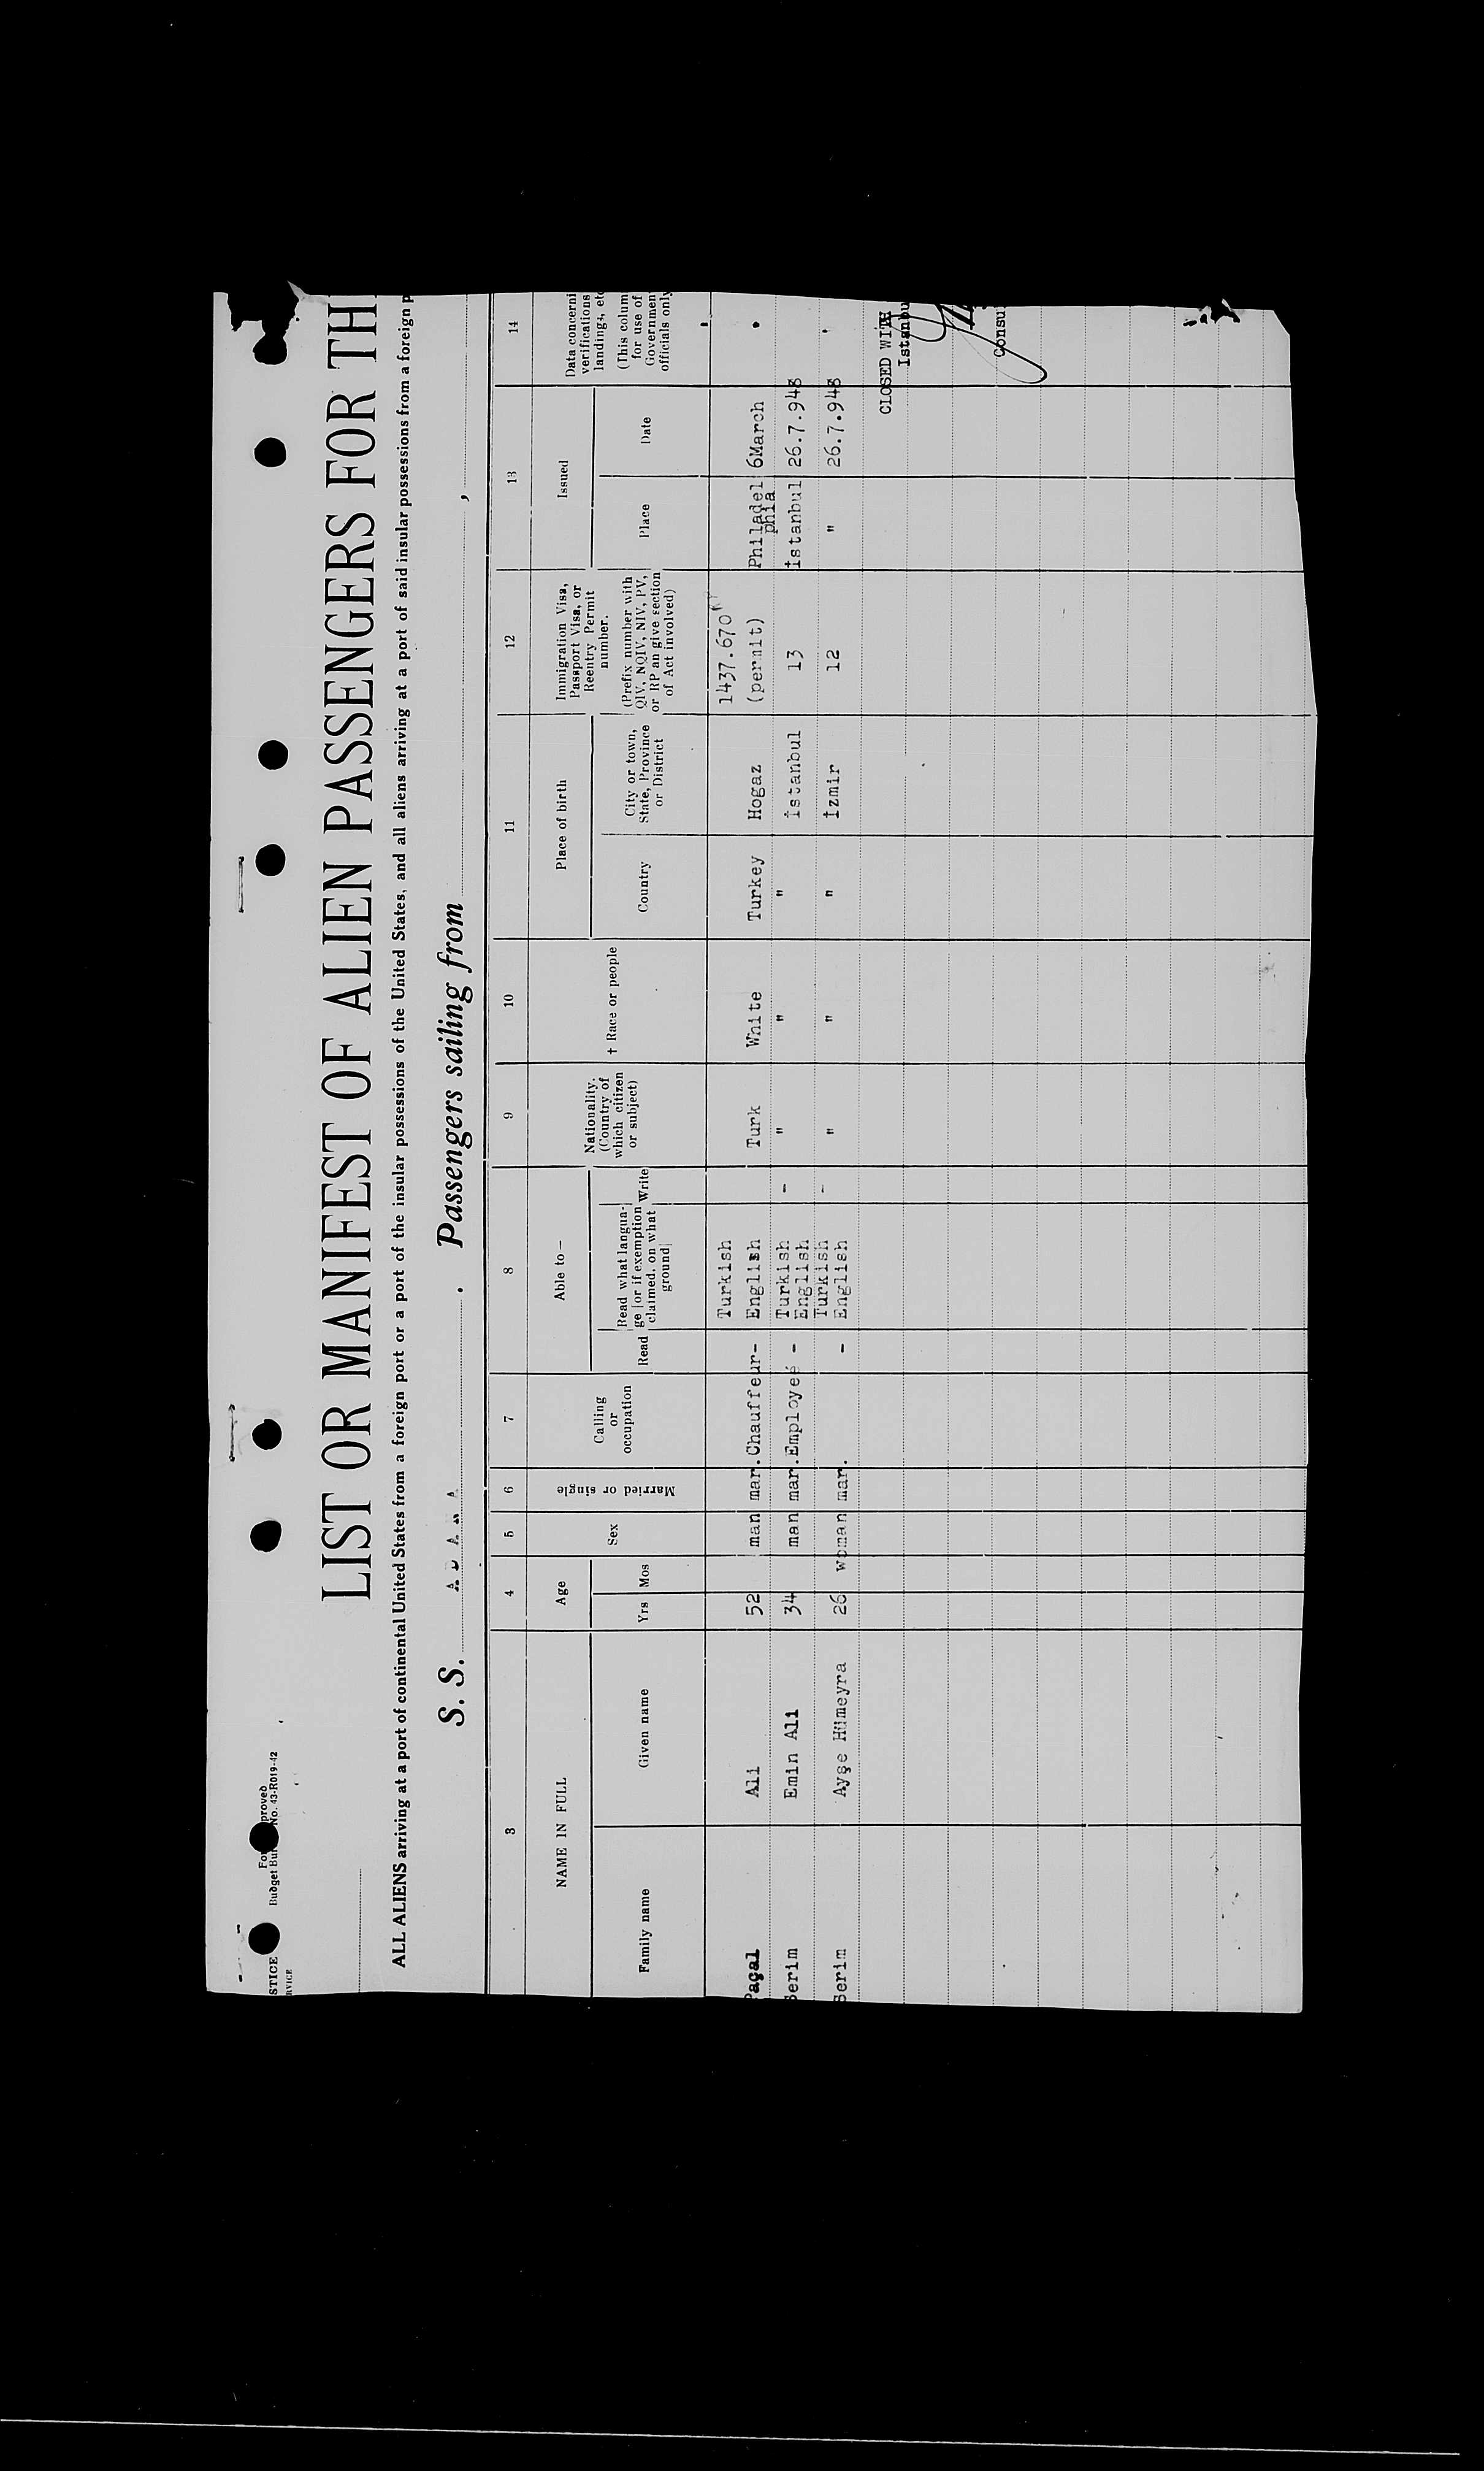 STICE
RVICE
Budget Bur No. 43-R019-42
LIST OR MANIFEST OF ALIEN PASSENGERS FOR TH
ALL ALIENS arriving at a port of continental United States from a foreign port or a port of the insular possessions of the United States, and all aliens arriving at a port of said insular possessions from a foreign p
S. S. A D A N A . Passengers sailing from ,
3 4 5 6 7 8 9 10 11 12 13 14
NAME IN FULL
Family name
Given name
Age
Yrs
Mos
Sex
Married or single
Calling
or
occupation
Able to —
Read
Read what langua-
ge [or if exemption
claimed, on what
ground]
Write
Nationality.
(Country of
which citizen
or subject)
† Race or people
Place of birth
Country
City or town,
State, Province
or District
Immigration Visa,
Passport Visa, or
Reentry Permit
number.
(Prefix number with
QIV, NQIV, NIV, PV,
or RP an give section
of Act involved)
Issued
Place
Date
Data concerni
verifications
landings, etc
(This colum
for use of
Governmen
officials only
Turkish 1437.670
Paçal Ali 52 man mar. Chauffeur - English Turk White Turkey Hogaz (permit) Philadel 6March
phia
Serim Emin Ali 34 man mar. Employeé - Turkish - " " " İstanbul 13 İstanbul 26.7.948
English
Turkish
Serim Ayşe Hümeyra 26 woman mar. - English - " " " İzmir 12 " 26.7.948
CLOSED WITH
Istanbu
Consu